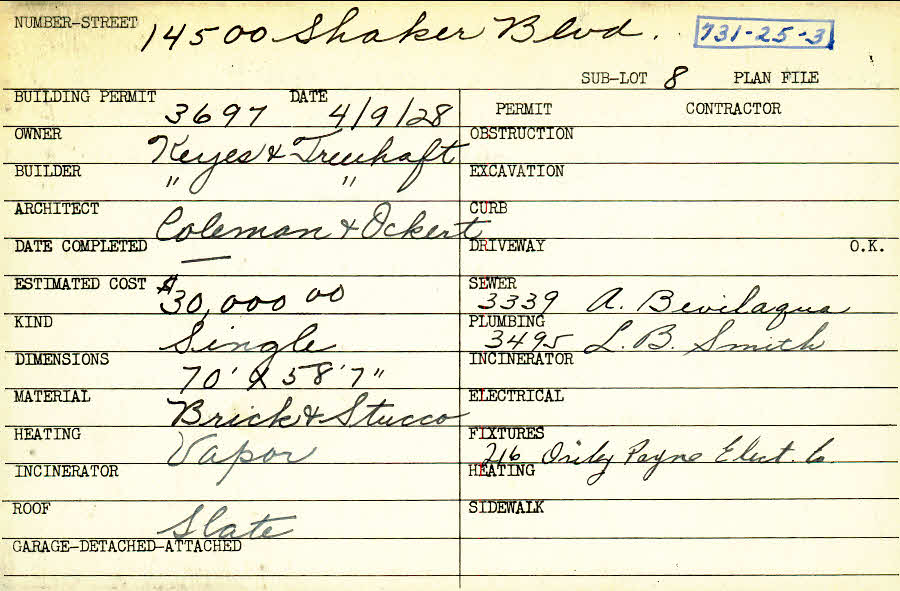 NUMBER-STREET 14500 Shaker Blvd. 731-25-3
SUB-LOT 8 PLAN FILE
BUILDING PERMIT 3697 DATE 4/9/28
PERMIT CONTRACTOR
OWNER Keyes & Treuhaft
OBSTRUCTION
BUILDER " "
EXCAVATION
ARCHITECT Coleman & Ockert
CURB
DATE COMPLETED —
DRIVEWAY O.K.
ESTIMATED COST $30,000 00
SEWER 3339 A. Bevilaqua
KIND Single
PLUMBING 3495 L. B. Smith
DIMENSIONS 70' X 58'7"
INCINERATOR
MATERIAL Brick & Stucco
ELECTRICAL
HEATING Vapor
FIXTURES 216 Payne Elect. Co.
INCINERATOR
HEATING
ROOF Slate
SIDEWALK
GARAGE-DETACHED-ATTACHED